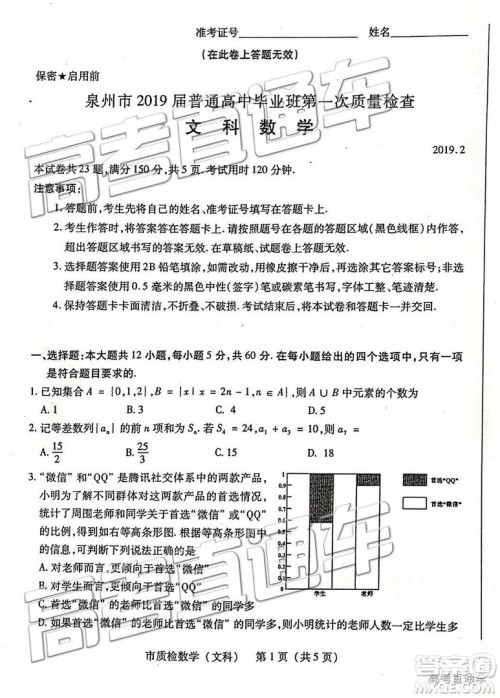 准考证号 姓名
(在此卷上答题无效)
保密★启用前
泉州市 2019 届普通高中毕业班第一次质量检查
文 科 数 学
2019.2
本试卷共 23 题,满分 150 分,共 5 页.考试用时 120 分钟.
注意事项:
1. 答题前,考生先将自己的姓名、准考证号填写在答题卡上.
2. 考生作答时,将答案答在答题卡上.请按照题号在各题的答题区域(黑色线框)内作答,
超出答题区域书写的答案无效.在草稿纸、试题卷上答题无效.
3. 选择题答案使用 2B 铅笔填涂,如需改动,用橡皮擦干净后,再选涂其他答案标号;非
选择题答案使用 0.5 毫米的黑色中性(签字)笔或碳素笔书写,字体工整、笔迹清楚.
4. 保持答题卡卡面清洁,不折叠、不破损.考试结束后,将本试卷和答题卡一并交回.
一、选择题:本大题共 12 小题,每小题 5 分,共 60 分.在每小题给出的四个选项中,只有一项
是符合题目要求的.
1. 已知集合 A = {0,1,2}, B = {x|x = 2n − 1, n ∈ A}, 则 A ∪ B 中元素的个数为
A. 1 B. 2 C. 4 D. 5
2. 记等差数列{aₙ}的前 n 项和为 Sₙ. 若 S₄ = 24, a₁ + a₂ = 10, 则 a₇ =
A. 15/2 B. 25/3 C. 15 D. 18
3. “微信”和“QQ”是腾讯社交体系中的两款产品,
小明为了解不同群体对这两款产品的首选情况,
统计了周围老师和同学关于首选“微信”或“QQ”
的比例,得到如右等高条形图.根据等高条形图中的信
息,可判断下列说法正确的是
A. 对老师而言,更倾向于首选“微信”
B. 对学生而言,更倾向于首选“QQ”
C. 首选“微信”的老师比首选“微信”的同学多
D. 如果首选“微信”的老师比首选“微信”的同学多,则小明统计的老师人数一定比学生多
1
0.9
0.8
0.7
0.6
0.5
0.4
0.3
0.2
0.1
0
学生 老师
首选“QQ”
首选“微信”
市质检数学(文科) 第 1 页(共 5 页)
高考直通车
高考直通车
高考直通车